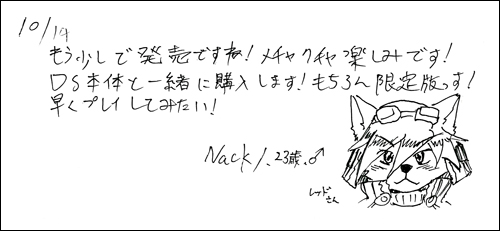 10/19
もう少しで発売ですね!メチャクチャ楽しみです!
DS本体と一緒に購入します!もちろん限定版っす!
早くプレイしてみたい!
Nack/.23歳.♂
レッドさん